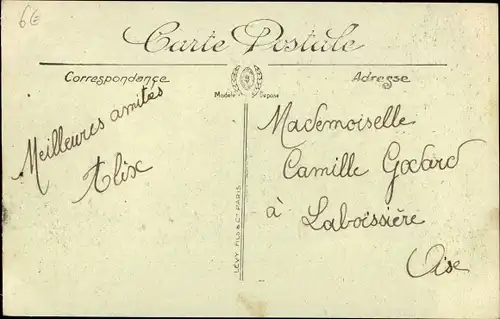 6€
Carte Postale
Correspondance
Adresse
Modèle Déposé
Meilleures amitiés
Alix
Mademoiselle
Camille Godard
à Laboissière
Oise
LÉVY FILS & Cie PARIS